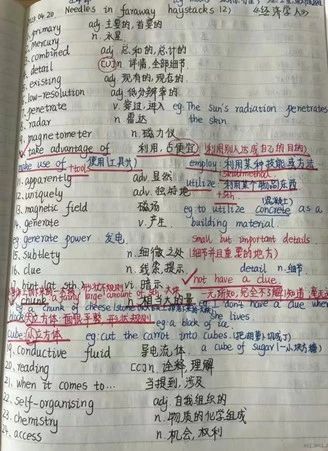 Needles in faraway haystacks (2) 《经济学人》
primary adj. 主要的,首要的
mercury n. 水星
combined adj. 总和的,总计的
detail [U] n 详情,全部细节
existing adj 现有的,现存的
low-resolution adj 低分辨率的
penetrate v. 穿过,进入 eg The Sun's radiation penetrates
radar n 雷达 the skin
magnetometer n. 磁力仪
take advantage of 利用,占便宜 (利用别人达成自己的目的)
make use of +tools 使用(工具类) employ: 利用某种技能或方法
11. apparently adv 显然 +skill/method
12. uniquely adv. 独特地 utilize 利用某个物品/东西
+sth
13. magnetic field 磁场 eg to utilize concrete as a
14. generate v. 产生 building material.
eg generate power 发电 small but important details
15. subtlety n. 细微之处 (细节并且重要的地方)
16. clue n. 线索,提示 detail n.细节
hint vi. 暗示 not have a clue
chunk n 相当大的量 eg. I don't have a clue where
a chunk of cheese she lives
立方体 eg: a block of ice
cube: 立方体 eg: cut the carrot into cubes (把胡萝卜切成丁)
conductive fluid 导电流体 a cube of sugar (一小块方糖)
20. reading n. 诠释,理解
21. when it comes to... 当提到,涉及
22. self-organising adj 自我组织的
23. chemistry n. 物质的化学组成
24. access n. 机会,权利